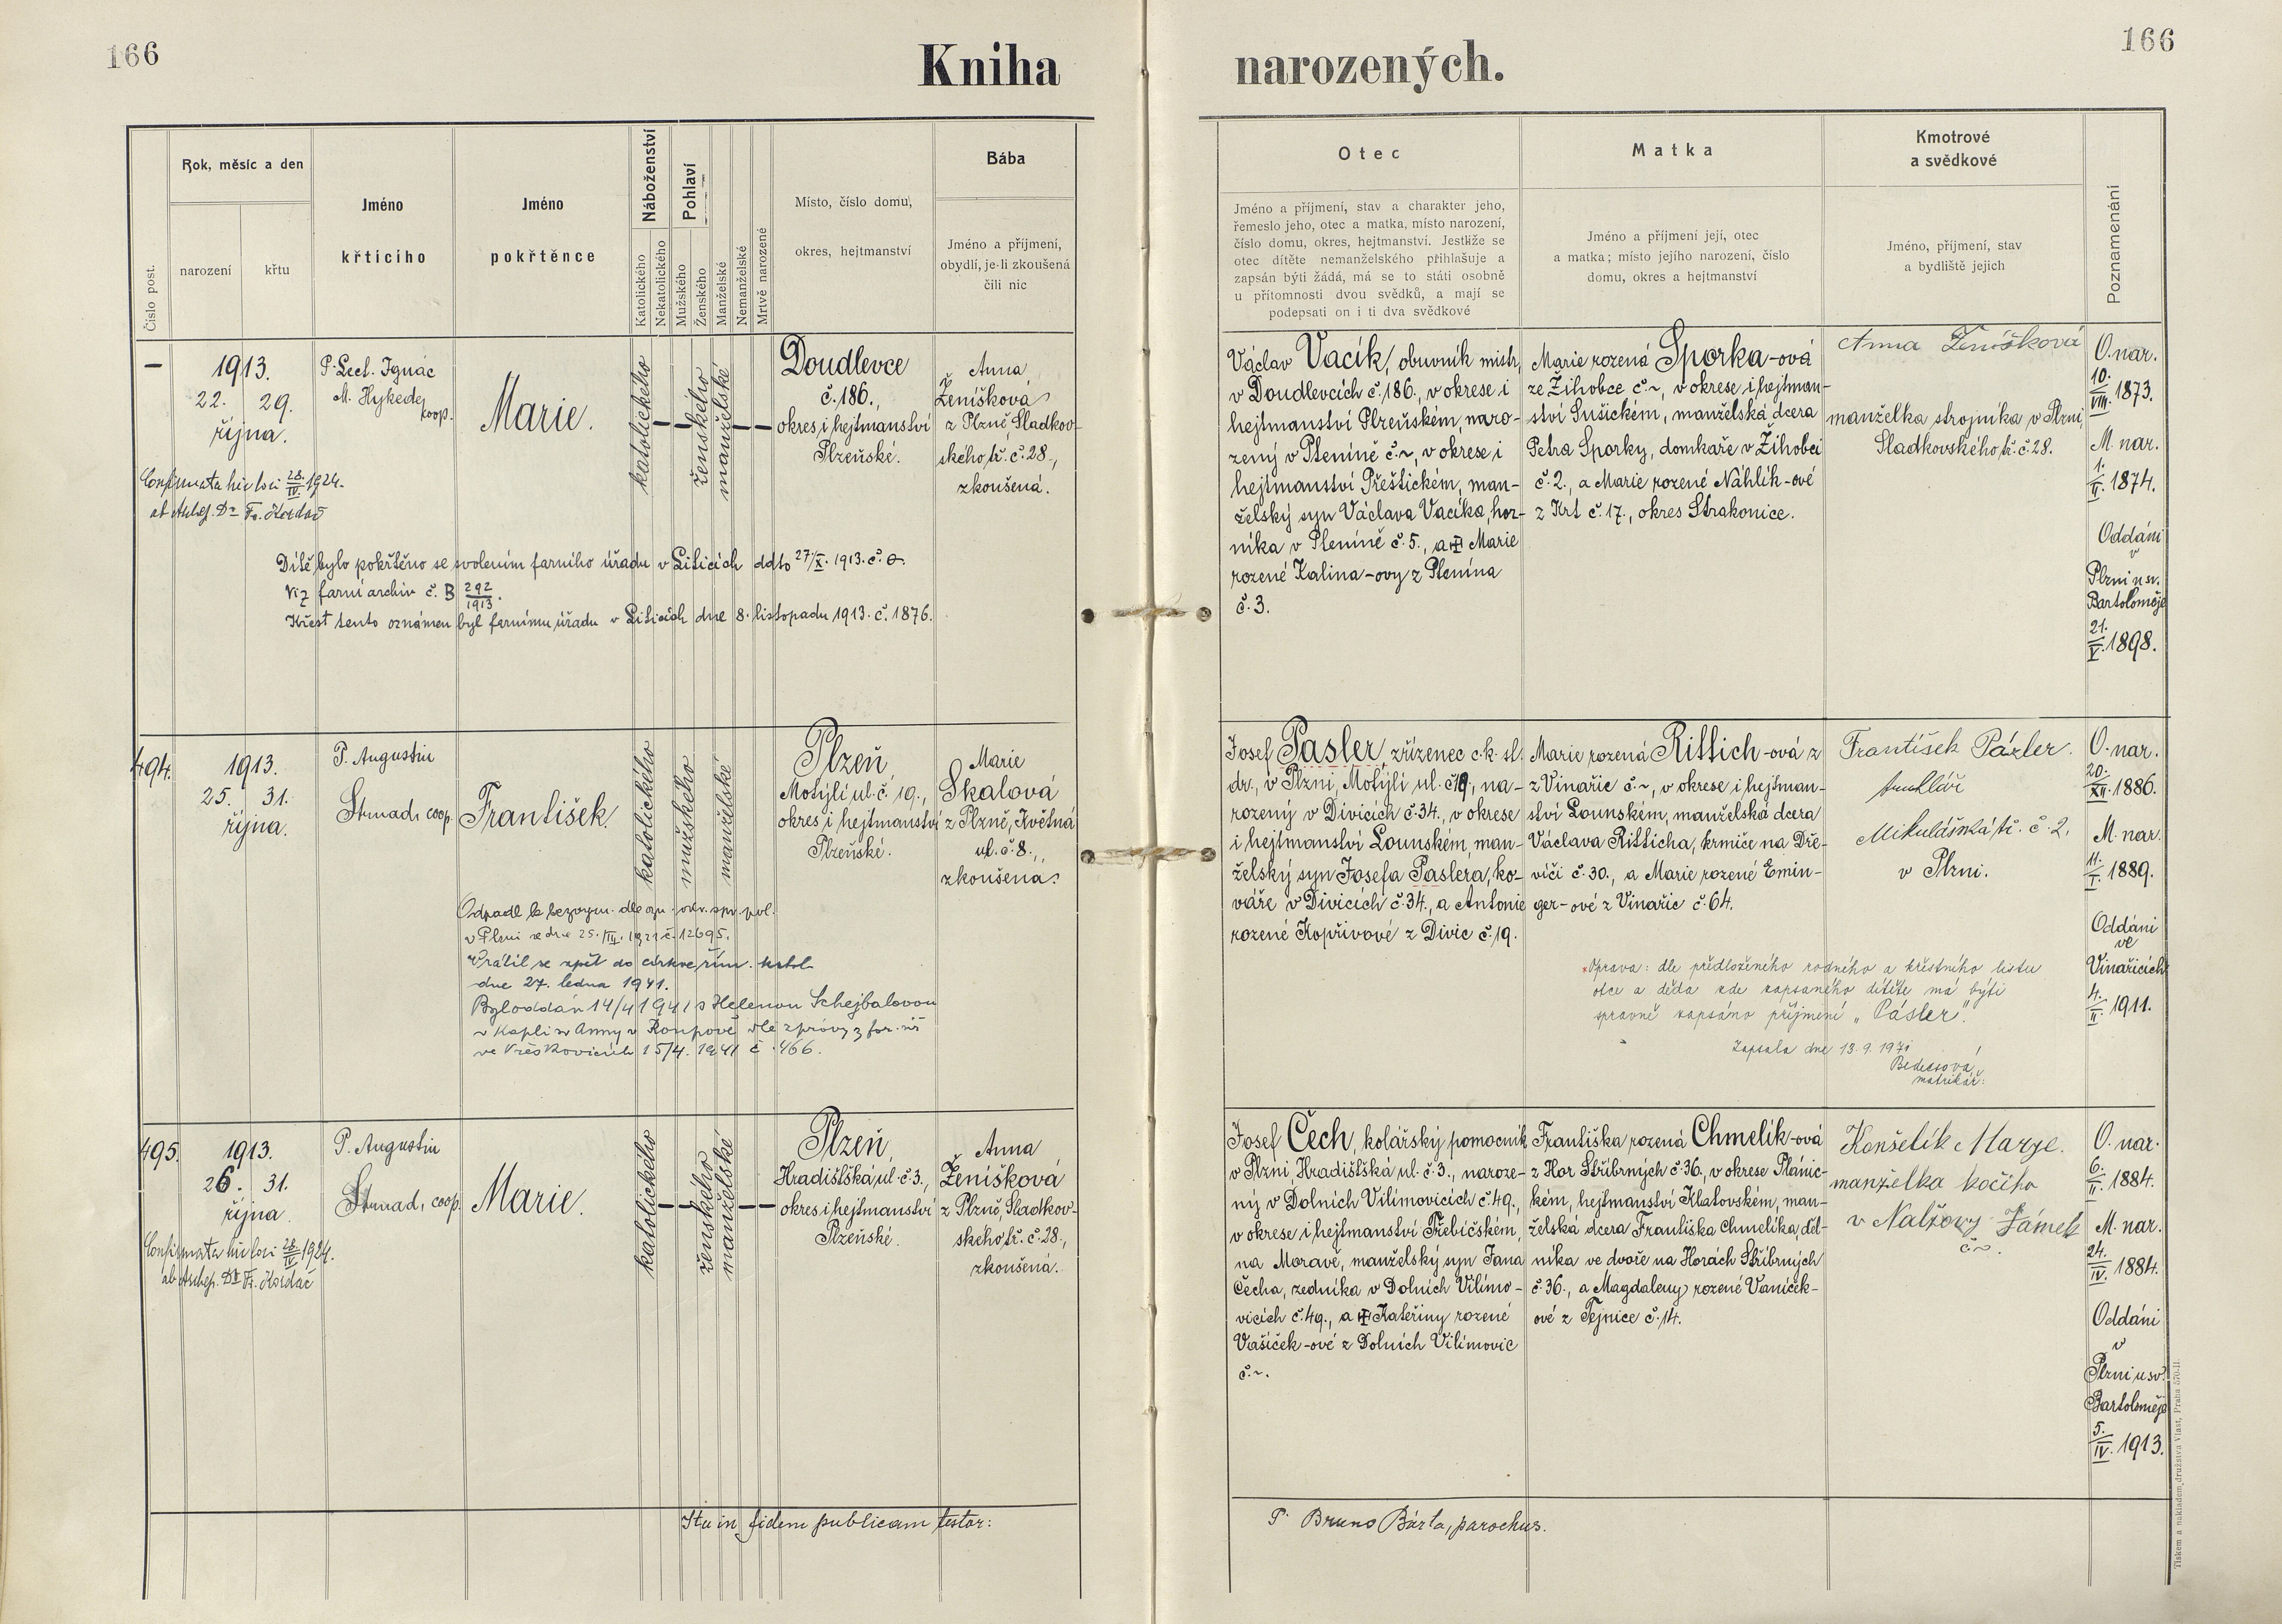 166
Kniha
narozených.
166
Číslo post.
Rok, měsíc a den
narození
křtu
Jméno
křtícího
Jméno
pokřtěnce
Náboženství
Katolického
Nekatolického
Pohlaví
Mužského
Ženského
Manželské
Nemanželské
Mrtvě narozené
Místo, číslo domu,
okres, hejtmanství
Bába
Jméno a příjmení,
obydlí, je-li zkoušená
čili nic
Otec
Jméno a příjmení, stav a charakter jeho,
řemeslo jeho, otec a matka, místo narození,
číslo domu, okres, hejtmanství. Jestliže se
otec dítěte nemanželského přihlašuje a
zapsán býti žádá, má se to státi osobně
u přítomnosti dvou svědků, a mají se
podepsati on i ti dva svědkové
Matka
Jméno a příjmení její, otec
a matka; místo jejího narození, číslo
domu, okres a hejtmanství
Kmotrové
a svědkové
Jméno, příjmení, stav
a bydliště jejich
Poznamenání
–
1913.
22. 29.
října.
P. Lect. Ignác
M. Hykede
coop.
Marie.
katolického
ženského
manželské
Doudlevce
č. 186.,
okres i hejtmanství
Plzeňské.
Anna
Ženíšková
z Plzně, Sladkov-
ského tř. č. 28.,
zkoušená.
Confirmata hic loci 28./IV. 1924.
ab Archiep. Dr. Fr. Kordač
Dítě bylo pokřtěno se svolením farního úřadu v Liticích ddto 27/X. 1913. č. 0.
Viz farní archiv č. B 292/1913.
Křest tento oznámen byl farnímu úřadu v Liticích dne 8. listopadu 1913. č. 1876.
Václav Vacík, obuvník mistr,
v Doudlevcích č. 186., v okrese i
hejtmanství Plzeňském, naro-
zený v Pteníně č. ~, v okrese i
hejtmanství Přeštickém, man-
želský syn Václava Vacíka, hor-
níka v Pteníně č. 5., a Marie
rozené Kalina-ovy z Ptenína
č. 3.
Marie rozená Sporka-ová
ze Žihobce č. ~, v okrese i hejtman-
ství Sušickém, manželská dcera
Petra Sporky, domkaře v Žihobci
č. 2., a Marie rozené Náhlík-ové
z Krt č. 17., okres Strakonice.
Anna Ženíšková
manželka strojníka v Plzni,
Sladkovského tř. č. 28.
O. nar.
10./VIII. 1873.
M. nar.
1./II. 1874.
Oddáni
v
Plzni u sv.
Bartoloměje
21./V. 1898.
494.
1913.
25. 31.
října.
P. Augustin
Strnad, coop.
František.
katolického
mužského
manželské
Plzeň
Motýlí ul. č. 19.,
okres i hejtmanství
Plzeňské.
Marie
Skalová
z Plzně, Květná
ul. č. 8.,
zkoušena.
Odpadl k bezvyzn. dle ozn. okr. spr. pol.
v Plzni ze dne 25./III. 1921 č. 12695.
Vrátil se zpět do církve řím. katol.
dne 27. ledna 1941.
Byl oddán 14/4 1941 s Helenou Schejbalovou
v kapli sv. Anny v Roupově dle zprávy z far. úř
ve Vřeskovicích 15/4. 1941 č. 466.
Josef Pasler, zřízenec c. k. st.
dr., v Plzni, Motýlí ul. č. 19, na-
rozený v Divicích č. 34., v okrese
i hejtmanství Lounském, man-
želský syn Josefa Paslera, ko-
váře v Divicích č. 34., a Antonie
rozené Kopřivové z Divic č. 19.
Marie rozená Rittich-ová z
z Vinařic č. ~, v okrese i hejtman-
ství Lounském, manželská dcera
Václava Ritticha, krmiče na Dře-
víči č. 30., a Marie rozené Emin-
ger-ové z Vinařic č. 64.
*Oprava: dle předloženého rodného a křestního listu
otce a děda zde zapsaného dítěte má býti
správně zapsáno příjmení „Pásler".
Zapsala dne 13. 9. 1971
matrikář:
František Pázler.
truhlář
Mikulášská tř. č. 2.
v Plzni.
O. nar.
20./XII. 1886.
M. nar.
11./I. 1889.
Oddáni
ve
Vinařicích
4./II. 1911.
495.
1913.
26. 31.
října.
P. Augustin
Strnad, coop.
Marie.
katolického
ženského
manželské
Plzeň
Hradišťská ul. č. 3.,
okres i hejtmanství
Plzeňské.
Anna
Ženíšková
z Plzně, Sladkov-
ského tř. č. 28.,
zkoušená.
Confirmata hic loci 28./IV. 1924.
ab Archiep. Dr. Fr. Kordač
Josef Čech, kolářský pomocník
v Plzni, Hradišťská ul. č. 3., naroze-
ný v Dolních Vilímovicích č. 49.,
v okrese i hejtmanství Třebíčském,
na Moravě, manželský syn Jana
Čecha, zedníka v Dolních Vilímo-
vicích č. 49., a Kateřiny rozené
Vašíček-ové z Dolních Vilímovic
č. ~.
Františka rozená Chmelík-ová
z Hor Stříbrných č. 36., v okrese Plánic-
kém, hejtmanství Klatovském, man-
želská dcera Františka Chmelíka, děl-
níka ve dvoře na Horách Stříbrných
č. 36., a Magdaleny rozené Vaníček-
ové z Tejnice č. 14.
Konšelík Marye.
manželka kočího
v Nalžovy Zámek
č. ~.
O. nar.
6./II. 1884.
M. nar.
24./IV. 1884.
Oddáni
v
Plzni u sv.
Bartoloměje
5./IV. 1913.
Ita in fidem publicam testor:
P. Bruno Bárta, parochus.
Tiskem a nakladem družstva Vlast, Praha 570-II.